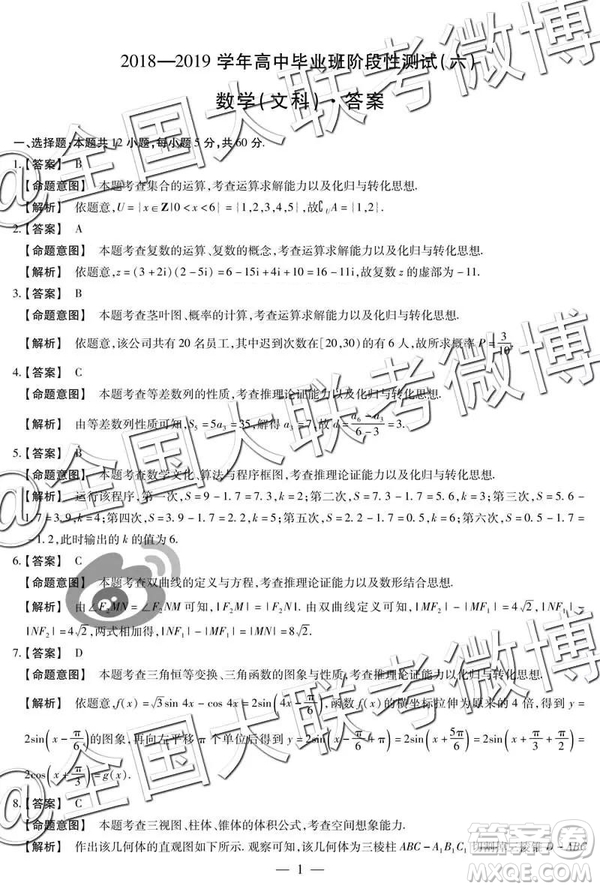 2018—2019 学年高中毕业班阶段性测试(六)
数学(文科)·答案
一、选择题:本题共 12 小题,每小题 5 分,共 60 分.
1.【答案】 B
【命题意图】 本题考查集合的运算,考查运算求解能力以及化归与转化思想.
【解析】 依题意,U={x∈Z|0<x<6}={1,2,3,4,5},故∁UA={1,2}.
2.【答案】 A
【命题意图】 本题考查复数的运算、复数的概念,考查运算求解能力以及化归与转化思想.
【解析】 依题意,z=(3+2i)(2-5i)=6-15i+4i+10=16-11i,故复数 z 的虚部为-11.
3.【答案】 B
【命题意图】 本题考查茎叶图、概率的计算,考查运算求解能力以及化归与转化思想.
【解析】 依题意,该公司共有 20 名员工,其中迟到次数在[20,30)的有 6 人,故所求概率 P=3/10.
4.【答案】 C
【命题意图】 本题考查等差数列的性质,考查推理论证能力以及化归与转化思想.
【解析】 由等差数列性质可知,S5=5a3=35,解得 a3=7.故 d=(a6-a3)/(6-3)=3.
5.【答案】 C
【命题意图】 本题考查数学文化、算法与程序框图,考查推理论证能力以及化归与转化思想.
【解析】 运行该程序,第一次,S=9-1.7=7.3,k=2;第二次,S=7.3-1.7=5.6,k=3;第三次,S=5.6-
1.7=3.9,k=4;第四次,S=3.9-1.7=2.2,k=5;第五次,S=2.2-1.7=0.5,k=6;第六次,S=0.5-1.7=
-1.2,此时输出的 k 的值为 6.
6.【答案】 C
【命题意图】 本题考查双曲线的定义与方程,考查推理论证能力以及数形结合思想.
【解析】 由∠F2MN=∠F2NM 可知,|F2M|=|F2N|.由双曲线定义可知,|MF2|-|MF1|=4√2,|NF1|-
|NF2|=4√2,两式相加得,|NF1|-|MF1|=|MN|=8√2.
7.【答案】 D
【命题意图】 本题考查三角恒等变换、三角函数的图象与性质,考查推理论证能力以及化归与转化思想.
【解析】 依题意,f(x)=√3sin 4x-cos 4x=2sin(4x-π/6),函数 f(x)的横坐标拉伸为原来的 4 倍后,得到 y=
2sin(x-π/6)的图象,再向左平移 π 个单位后得到 y=2sin(x-π/6+π)=2sin(x+5π/6)=2sin(x+π/3+π/2)=
2cos(x+π/3)=g(x).
8.【答案】 C
【命题意图】 本题考查三视图、柱体、锥体的体积公式,考查空间想象能力.
【解析】 作出该几何体的直观图如下所示.观察可知,该几何体为三棱柱 ABC-A1B1C1 切割掉三棱锥 D-ABC
— 1 —
@全国大联考微博
@全国大联考微博
@全国大联考微博
答案圈
MXQE.COM